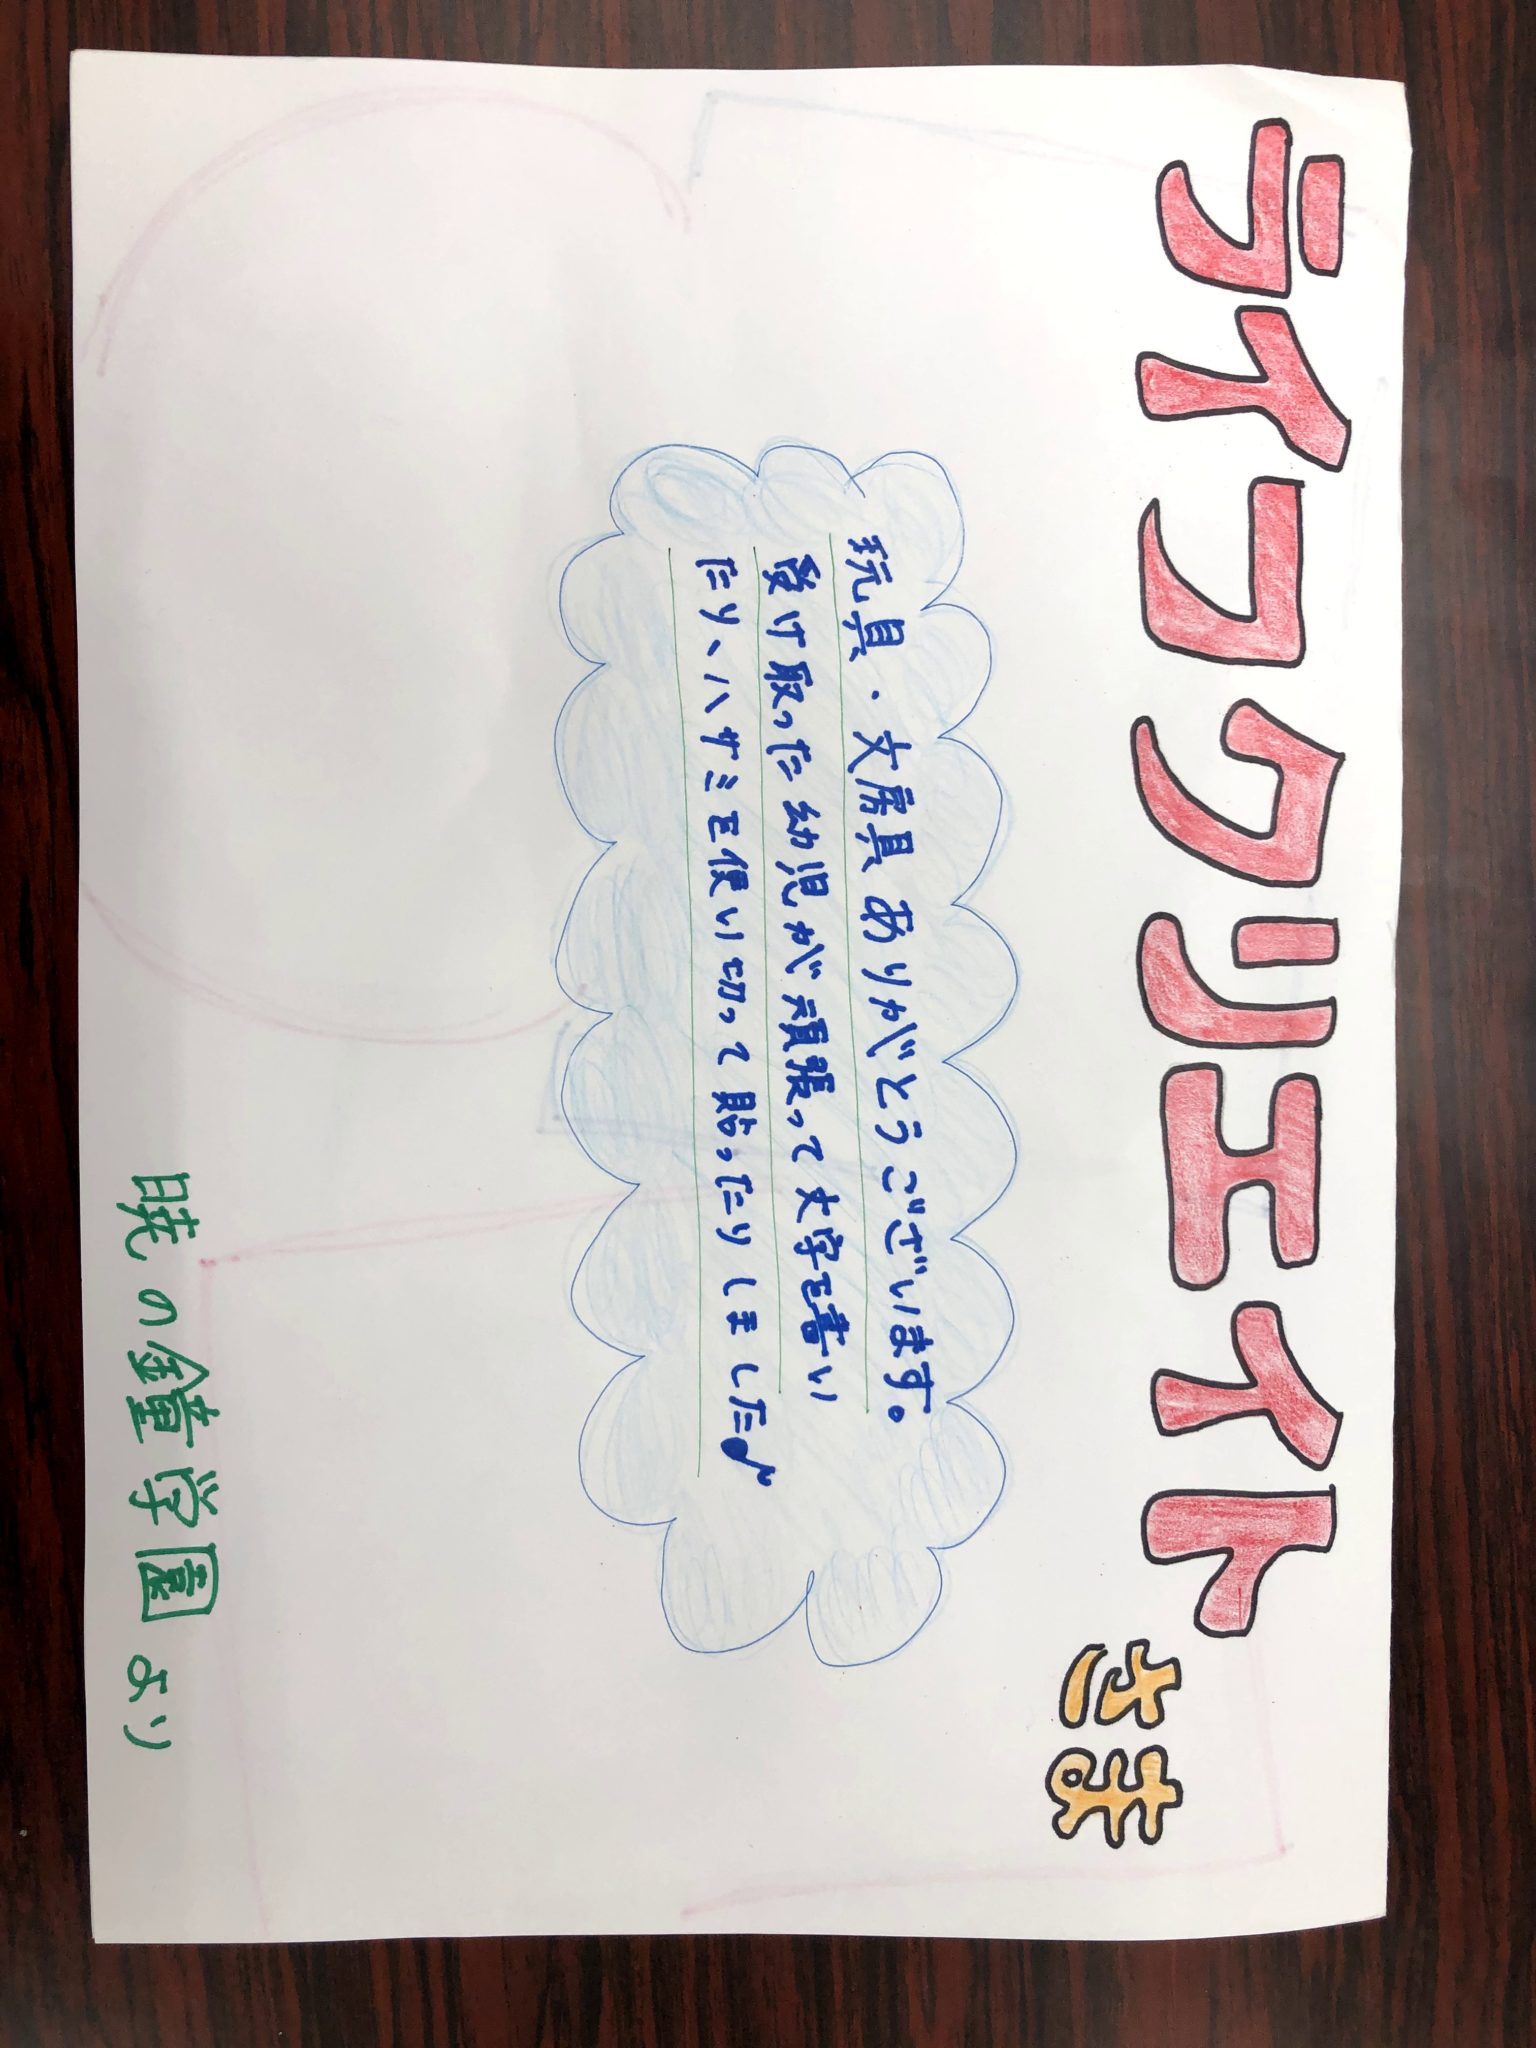 ライフクリエイト
さま
玩具・文房具ありがとうございます。
受け取った幼児が頑張って文字を書い
たり、ハサミを使い切って貼ったりしました♪
暁の鐘学園より